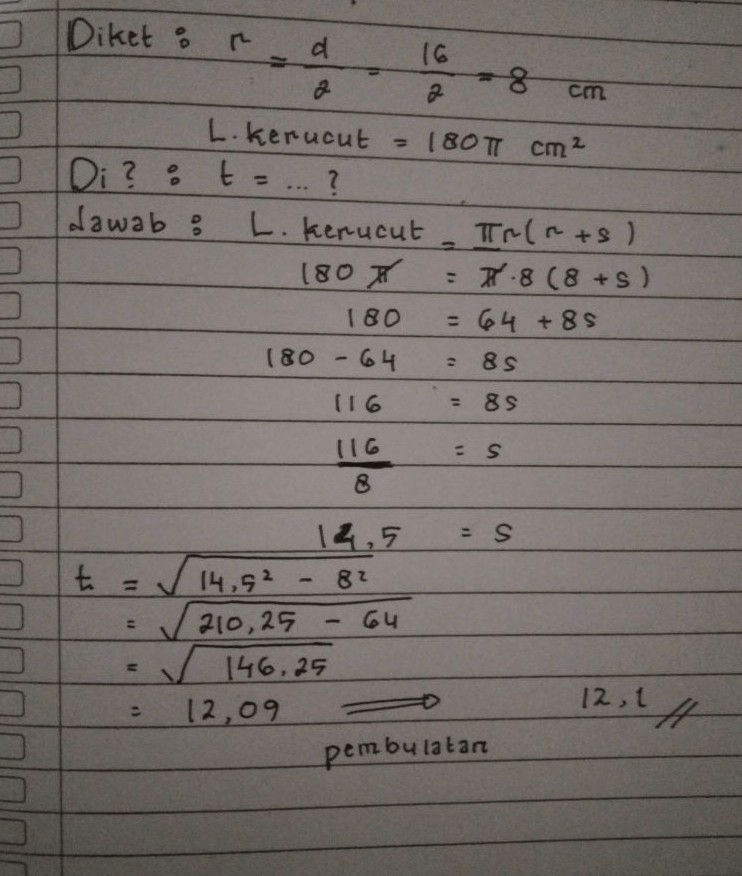 Diket : r = d/2 = 16/2 = 8 cm
L. kerucut = 180π cm²
Di? : t = ... ?
Jawab : L. kerucut = πr(r + s)
180 π = π . 8 (8 + s)
180 = 64 + 8s
180 - 64 = 8s
116 = 8s
116/8 = s
14,5 = s
t = √14,5² - 8²
= √210,25 - 64
= √146,25
= 12,09 ⟹ 12,1 //
pembulatan